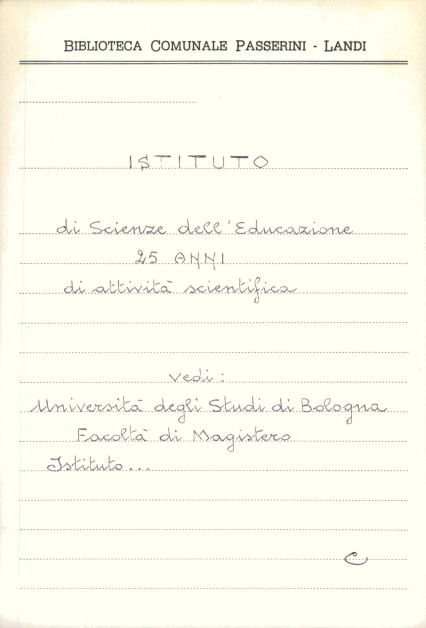 BIBLIOTECA COMUNALE PASSERINI - LANDI
ISTITUTO
di Scienze dell'Educazione
25 ANNI
di attività scientifica
vedi:
Università degli Studi di Bologna
Facoltà di Magistero
Istituto...
C